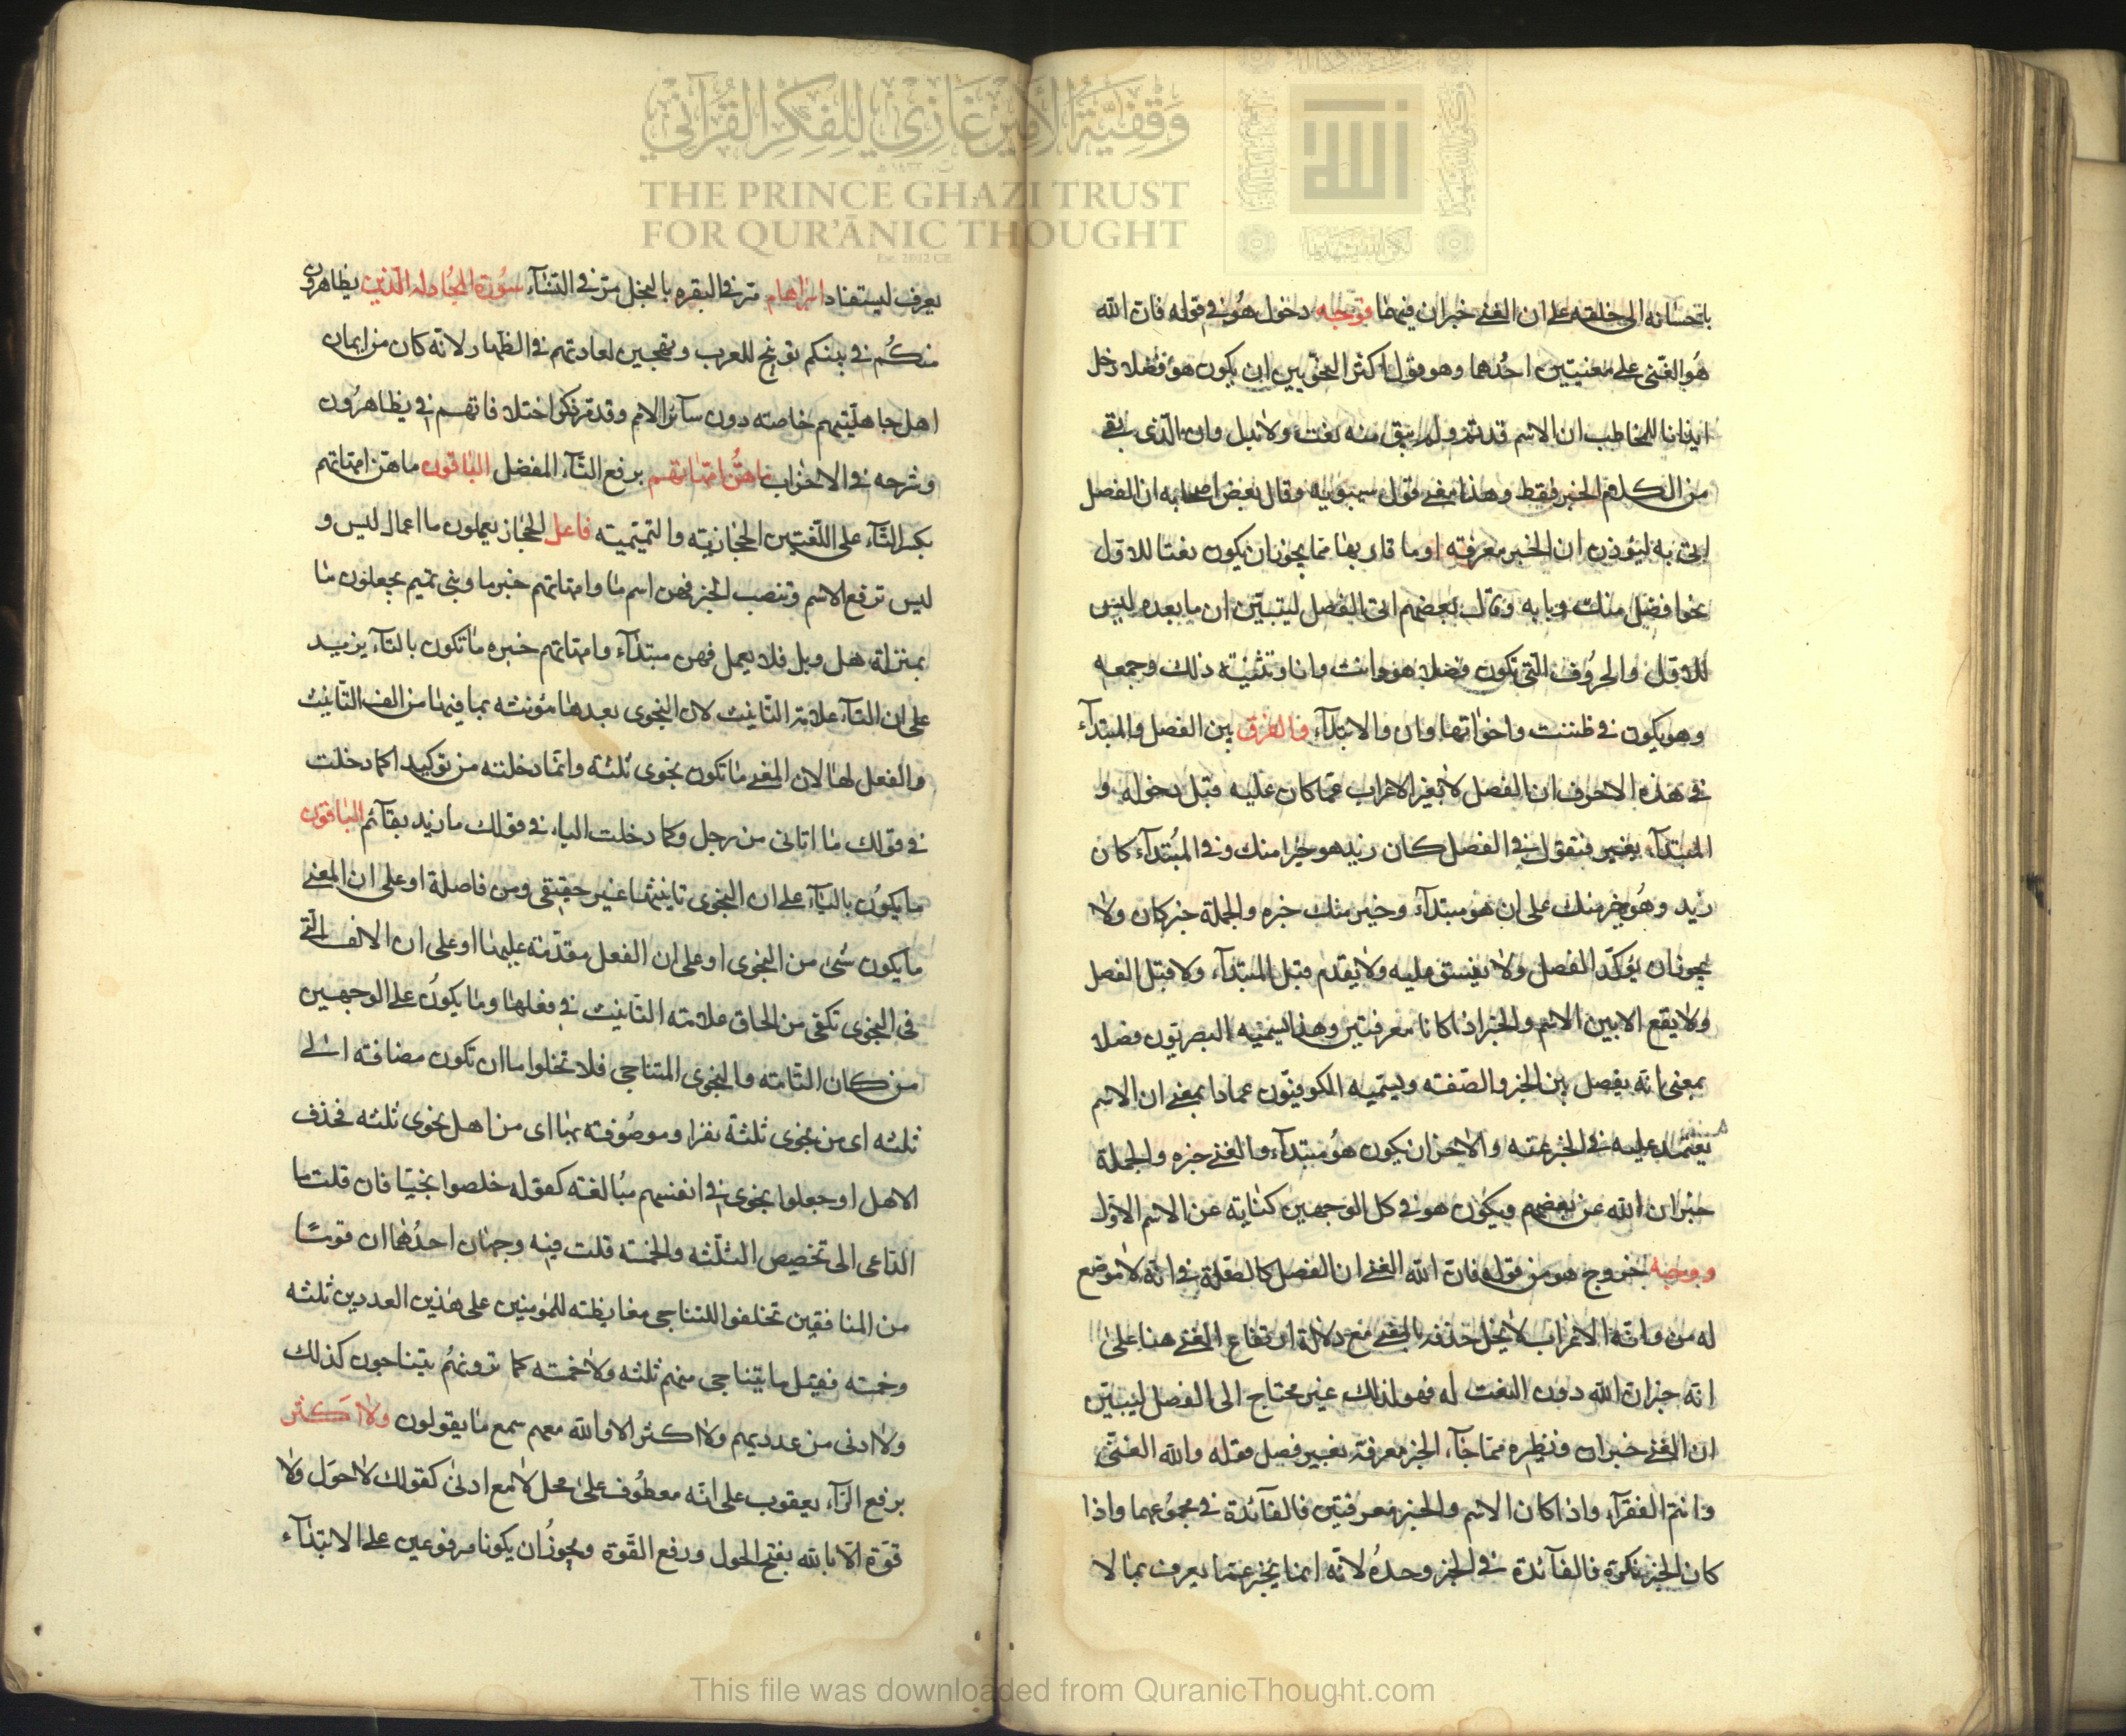 وقفية الأمير غازي للفكر القرآني
THE PRINCE GHAZI TRUST
FOR QUR'ĀNIC THOUGHT
Est. 2012 CE
الله
الى خلقه على ان الغنى خبر ان فيهما فوجه دخول هو في قوله فان الله
هو الغنى على معنيين احدهما وهو قول اكثر النحويين ان يكون هو فضلا دخل
ايذانا للمخاطب ان الاسم قد تم ولم يبق منه نعت ولا بدل وان الذى بقى
من الكلام الخبر فقط وهذا معنى قول سيبويه وقال بعض اصحابه ان الفصل
اتى به ليؤذن ان الخبر معرفته او ما قاربها مما يجوز ان يكون نعتا للاول
نحو افضل منك وبابه وقال بعضهم اتى الفصل ليتبين ان ما بعده ليس
للاول والحروف التى تكون فضلا هو وانت وانا وتثنيته ذلك وجمعه
وهو يكون في ظننت واخواتها وان والابتدآء فالفرق بين الفصل والمبتدآء
في هذه الاحرف ان الفصل لا يغير الاعراب عما كان عليه قبل دخوله و
المبتدآء يغير فتقول في الفصل كان زيد هو خيرا منك وفي المبتدآء كان
زيد وهو خير منك على ان هو مبتدآء وخير منك خبره والجملة خبر كان ولا
يجوز ان يؤكد الفصل ولا ينسق عليه ولا يقدم قبل المبتدآء ولا قبل الفصل
ولا يقع الا بين الاسم والخبر اذا كانا معرفتين وهذا يسميه البصريون فضلا
بمعنى انه يفصل بين الخبر والصفته ويسميه الكوفيون عمادا بمعنى ان الاسم
يعتمد عليه في الخبر عنه والاخر ان يكون هو مبتدآء والغنى خبره والجملة
خبر ان الله عن بعضهم ويكون هو في كل الوجهين كناية عن الاسم الاول
ووجه خروج هو من قوله فان الله الغنى ان الفصل كالصلة في انه لا موضع
له من الاعراب لا يخل حذفه بالمعنى مع دلالة ارتفاع الغنى هنا على
انه خبر ان الله دون النعت له فهو لذلك غير محتاج الى الفصل ليبين
ان الغنى خبر ان ونظيره مما جآء الخبر معرفة بغير فصل قوله والله الغنى
وانتم الفقرآء واذا كان الاسم والخبر معرفتين فالفآئدة في مجموعهما واذا
كان الخبر نكرة فالفآئدة في الخبر وحده لانه انما يخبر عما يعرف بما لا
يعرف ليستفاد ابراهام مر في البقره بالبخل مر في النسآء سورة المجادله الذين يظاهرون
منكم في بينكم توبيخ للعرب وتهجين لعادتهم في الظهار لانه كان من ايمان
اهل جاهليتهم خاصته دون سآئر الامم وقد مر ذكر اختلافهم في يظاهرون
وشرحه في الاحزاب ما هن امهاتهم برفع التآء المفضل الباقون ماهن امهاتهم
بكسر التآء على اللغتين الحجازيته والتميميته فاهل الحجاز يعملون ما اعمال ليس و
ليس ترفع الاسم وتنصب الخبر فهن اسم ما وامهاتهم خبر ما وبنى تميم يجعلون ما
بمنزلة هل وبل فلا يعمل فهن مبتدآء وامهاتهم خبره ما تكون بالتآء يزيد
على ان التآء علامة التانيث لان النجوى بعدها مؤنثه بما فيها من الف التانيث
والفعل لها لان المعنى ما تكون نجوى ثلثة وانما دخلته من توكيدا كما دخلت
في قولك ما اتانى من رجل وكما دخلت الباء في قولك ما زيد بقآئم الباقون
ما يكون باليآء على ان النجوى تانيثها غير حقيقى ومن فاصلة او على ان المعنى
ما يكون شئ من النجوى او على ان الفعل مقدمته عليها او على ان الالف التى
في النجوى تكفى من الحاق علامته التانيث في فعلها وما يكون على الوجهين
من كان التامته والنجوى المتناجى فلا تخلوا ما ان تكون مضافته الى
ثلثه اى من نجوى ثلثة نفرا وموصوفته بها اى من اهل نجوى ثلثه فحذف
الاهل او جعلوا نجوى في انفسهم مبالغته كقوله خلصوا نجيا فان قلت ما
الداعى الى تخصيص الثلثه والخمسته قلت فيه وجهان احدهما ان قوما
من المنافقين تخلفوا للتناجى مغايظته للمؤمنين على هذين العددين ثلثه
وخمسته فقيل ما يتناجى منهم ثلثه ولا خمسته كما ترونهم يتناجون كذلك
ولا ادنى من عدديهم ولا اكثر الا والله معهم سمع ما يقولون ولا اكثر
برفع الرآء يعقوب على انه معطوف على محل لا مع ادنى كقولك لا حول ولا
قوة الا بالله بفتح الحول ورفع القوة ويجوز ان يكونا مرفوعين على الابتدآء
This file was downloaded from QuranicThought.com